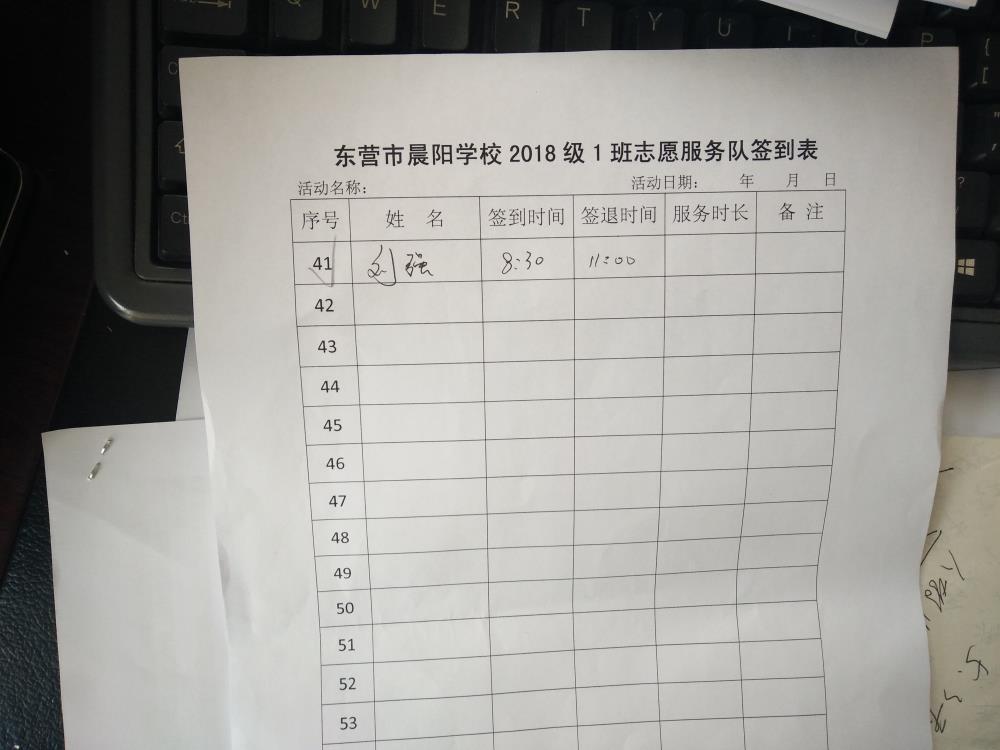 Q W E R T Y U I O P
东营市晨阳学校 2018 级 1 班志愿服务队签到表
活动名称： 活动日期： 年 月 日
序号 姓 名 签到时间 签退时间 服务时长 备 注
41 刘强 8:30 11:00
42
43
44
45
46
47
48
49
50
51
52
53